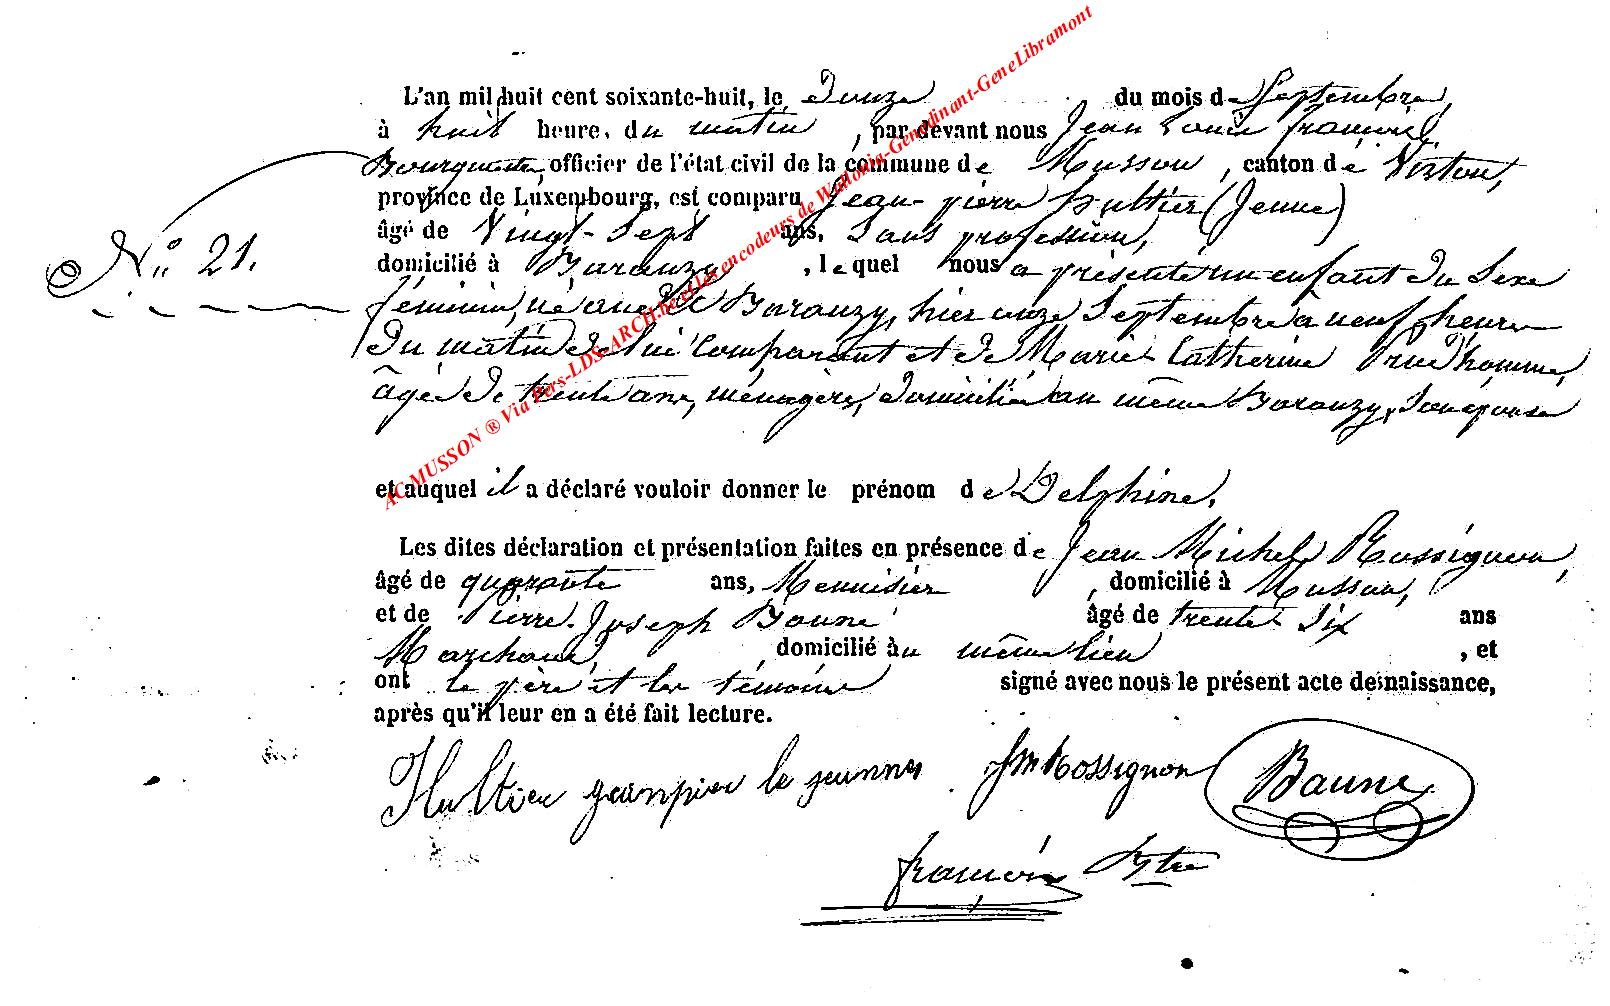 L'an mil huit cent soixante-huit, le Douze du mois de Septembre,
à huit heure. du matin, par devant nous Jean Louis françois,
Bourgmestre, officier de l'état civil de la commune de Musson, canton de Virton,
province de Luxembourg, est comparu Jean-pierre hultier (Jeune)
âgé de Vingt-Sept ans, Sans profession,
N° 21.
domicilié à Baranzy, lequel nous a présenté un enfant du Sexe
féminin, né audit Baranzy, hier onze Septembre a neuf heures
du matin de lui Comparant et de Marie Catherine Prud'homme,
âgée de trente ans, ménagère, domiciliée au même Baranzy, Son épouse
et auquel il a déclaré vouloir donner le prénom de Delphine.
Les dites déclaration et présentation faites en présence de Jean Michel Rossignon,
âgé de quarante ans, Menuisier, domicilié à Musson,
et de Pierre-Joseph Baune âgé de trente Six ans
Marchand, domicilié au même lieu, et
ont le père et les témoins signé avec nous le présent acte de naissance,
après qu'il leur en a été fait lecture.
Hultier jeanpier le jeunne JMRossignon Baune
françois Bgtre
AC-MUSSON ® Via Pers-LDS-ARCH.be et les encodeurs de Wallonia-Genedinant-GeneLibramont